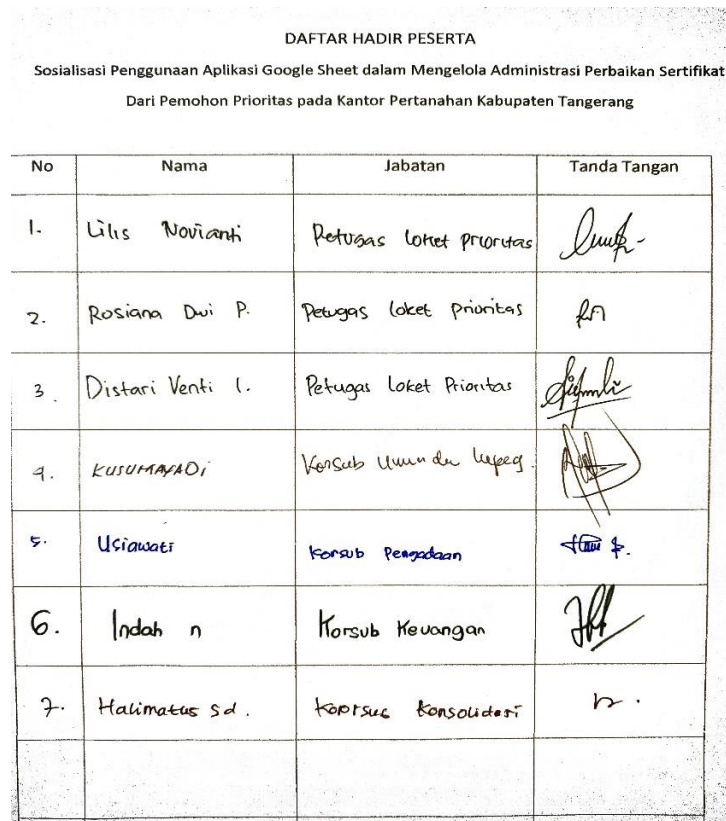 DAFTAR HADIR PESERTA
Sosialisasi Penggunaan Aplikasi Google Sheet dalam Mengelola Administrasi Perbaikan Sertifikat
Dari Pemohon Prioritas pada Kantor Pertanahan Kabupaten Tangerang
No Nama Jabatan Tanda Tangan
1. Lilis Novianti Petugas loket prioritas
2. Rosiana Dwi P. Petugas loket prioritas
3. Distari Venti l. Petugas Loket Prioritas
4. KUSUMAYADi Korsub Umum dan kepeg.
5. Usiawati Korsub Pengadaan
6. Indah n Korsub Keuangan
7. Halimatus sd. Konsolidasi